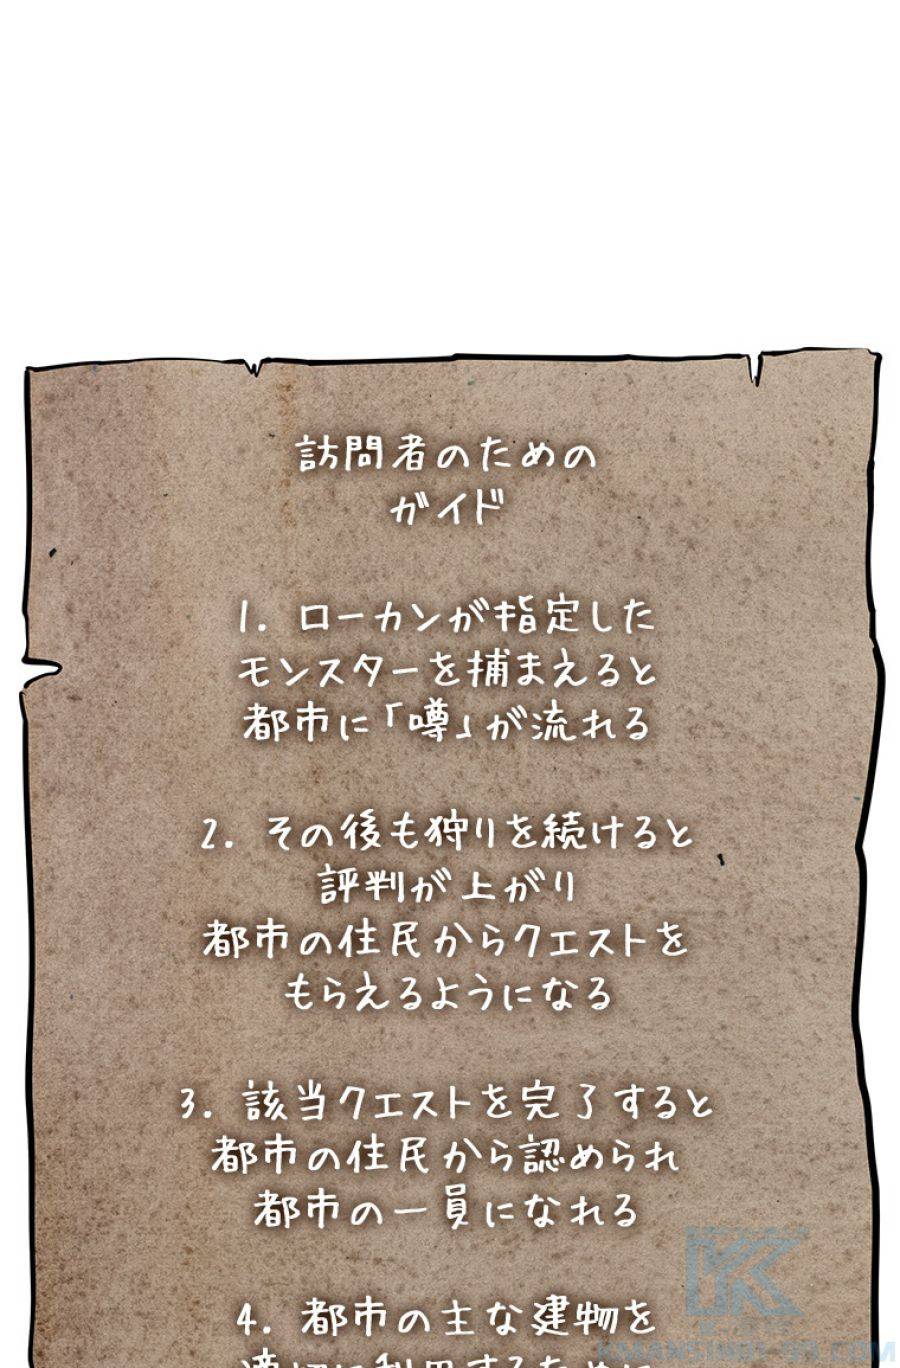 訪問者のための
ガイド
1. ローカンが指定した
モンスターを捕まえると
都市に「噂」が流れる
2. その後も狩りを続けると
評判が上がり
都市の住民からクエストを
もらえるようになる
3. 該当クエストを完了すると
都市の住民から認められ
都市の一員になれる
4. 都市の主な建物を
適切に利用するために